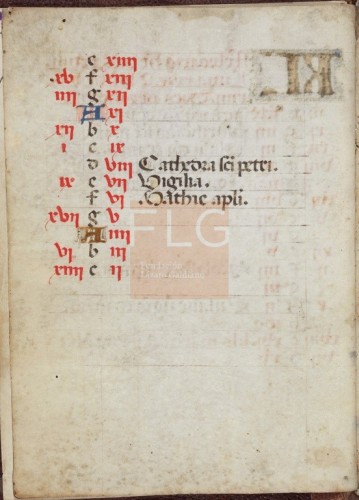 e xiiii
xv f xiii
iiii g xii
A xi
xii b x
i c ix
d viii Cathedra sci petri.
ix e vii Vigilia.
f vi Mathie apli.
xvii g v
FLG
A iiii
vi b iii
xiiii c ii